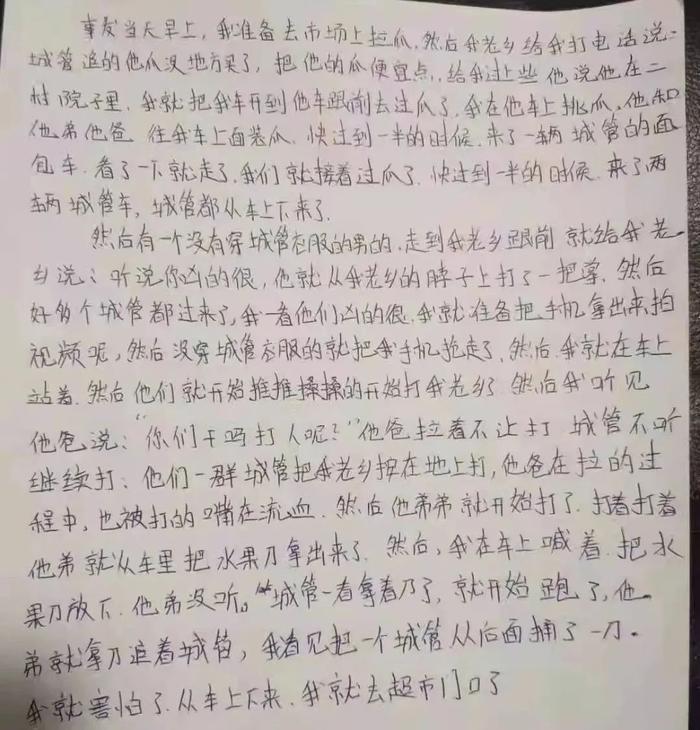 事发当天早上,我准备去市场上拉瓜,然后我老乡给我打电话说:
城管追的他瓜没地方买了,把他的瓜便宜点,给我过上些他说他在二
村院子里.我就把我车开到他车跟前去过瓜了.我在他车上挑瓜,他和
他弟他爸 往我车上面装瓜.快过到一半的时候.来了一辆城管的面
包车.看了一下就走了.我们就接着过瓜了.快过到一半的时候.来了两
辆城管车,城管都从车上下来了.
然后有一个没有穿城管衣服的男的.走到我老乡跟前就给我老
乡说:听说你凶的很,他就从我老乡的脖子上打了一把掌.然后
好多个城管都过来了,我一看他们凶的很.我就准备把手机拿出来拍
视频呢,然后没穿城管衣服的就把我手机抢走了.然后.我就在车上
站着.然后他们就开始推推搡搡的开始打我老乡 然后我听见
他爸说:“你们干吗打人呢?”他爸拉着不让打 城管不听
继续打、他们一群城管把我老乡按在地上打,他爸在拉的过
程中,也被打的嘴在流血.然后他弟弟就开始打了.打着打着
他弟就从车里把水果刀拿出来了.然后,我在车上喊着.把水
果刀放下.他弟没听。城管一看拿着刀了,就开始跑了,他
弟就拿刀追着城管,我看见把一个城管从后面捅了一刀.
我就害怕了.从车上下来.我就去超市门口了